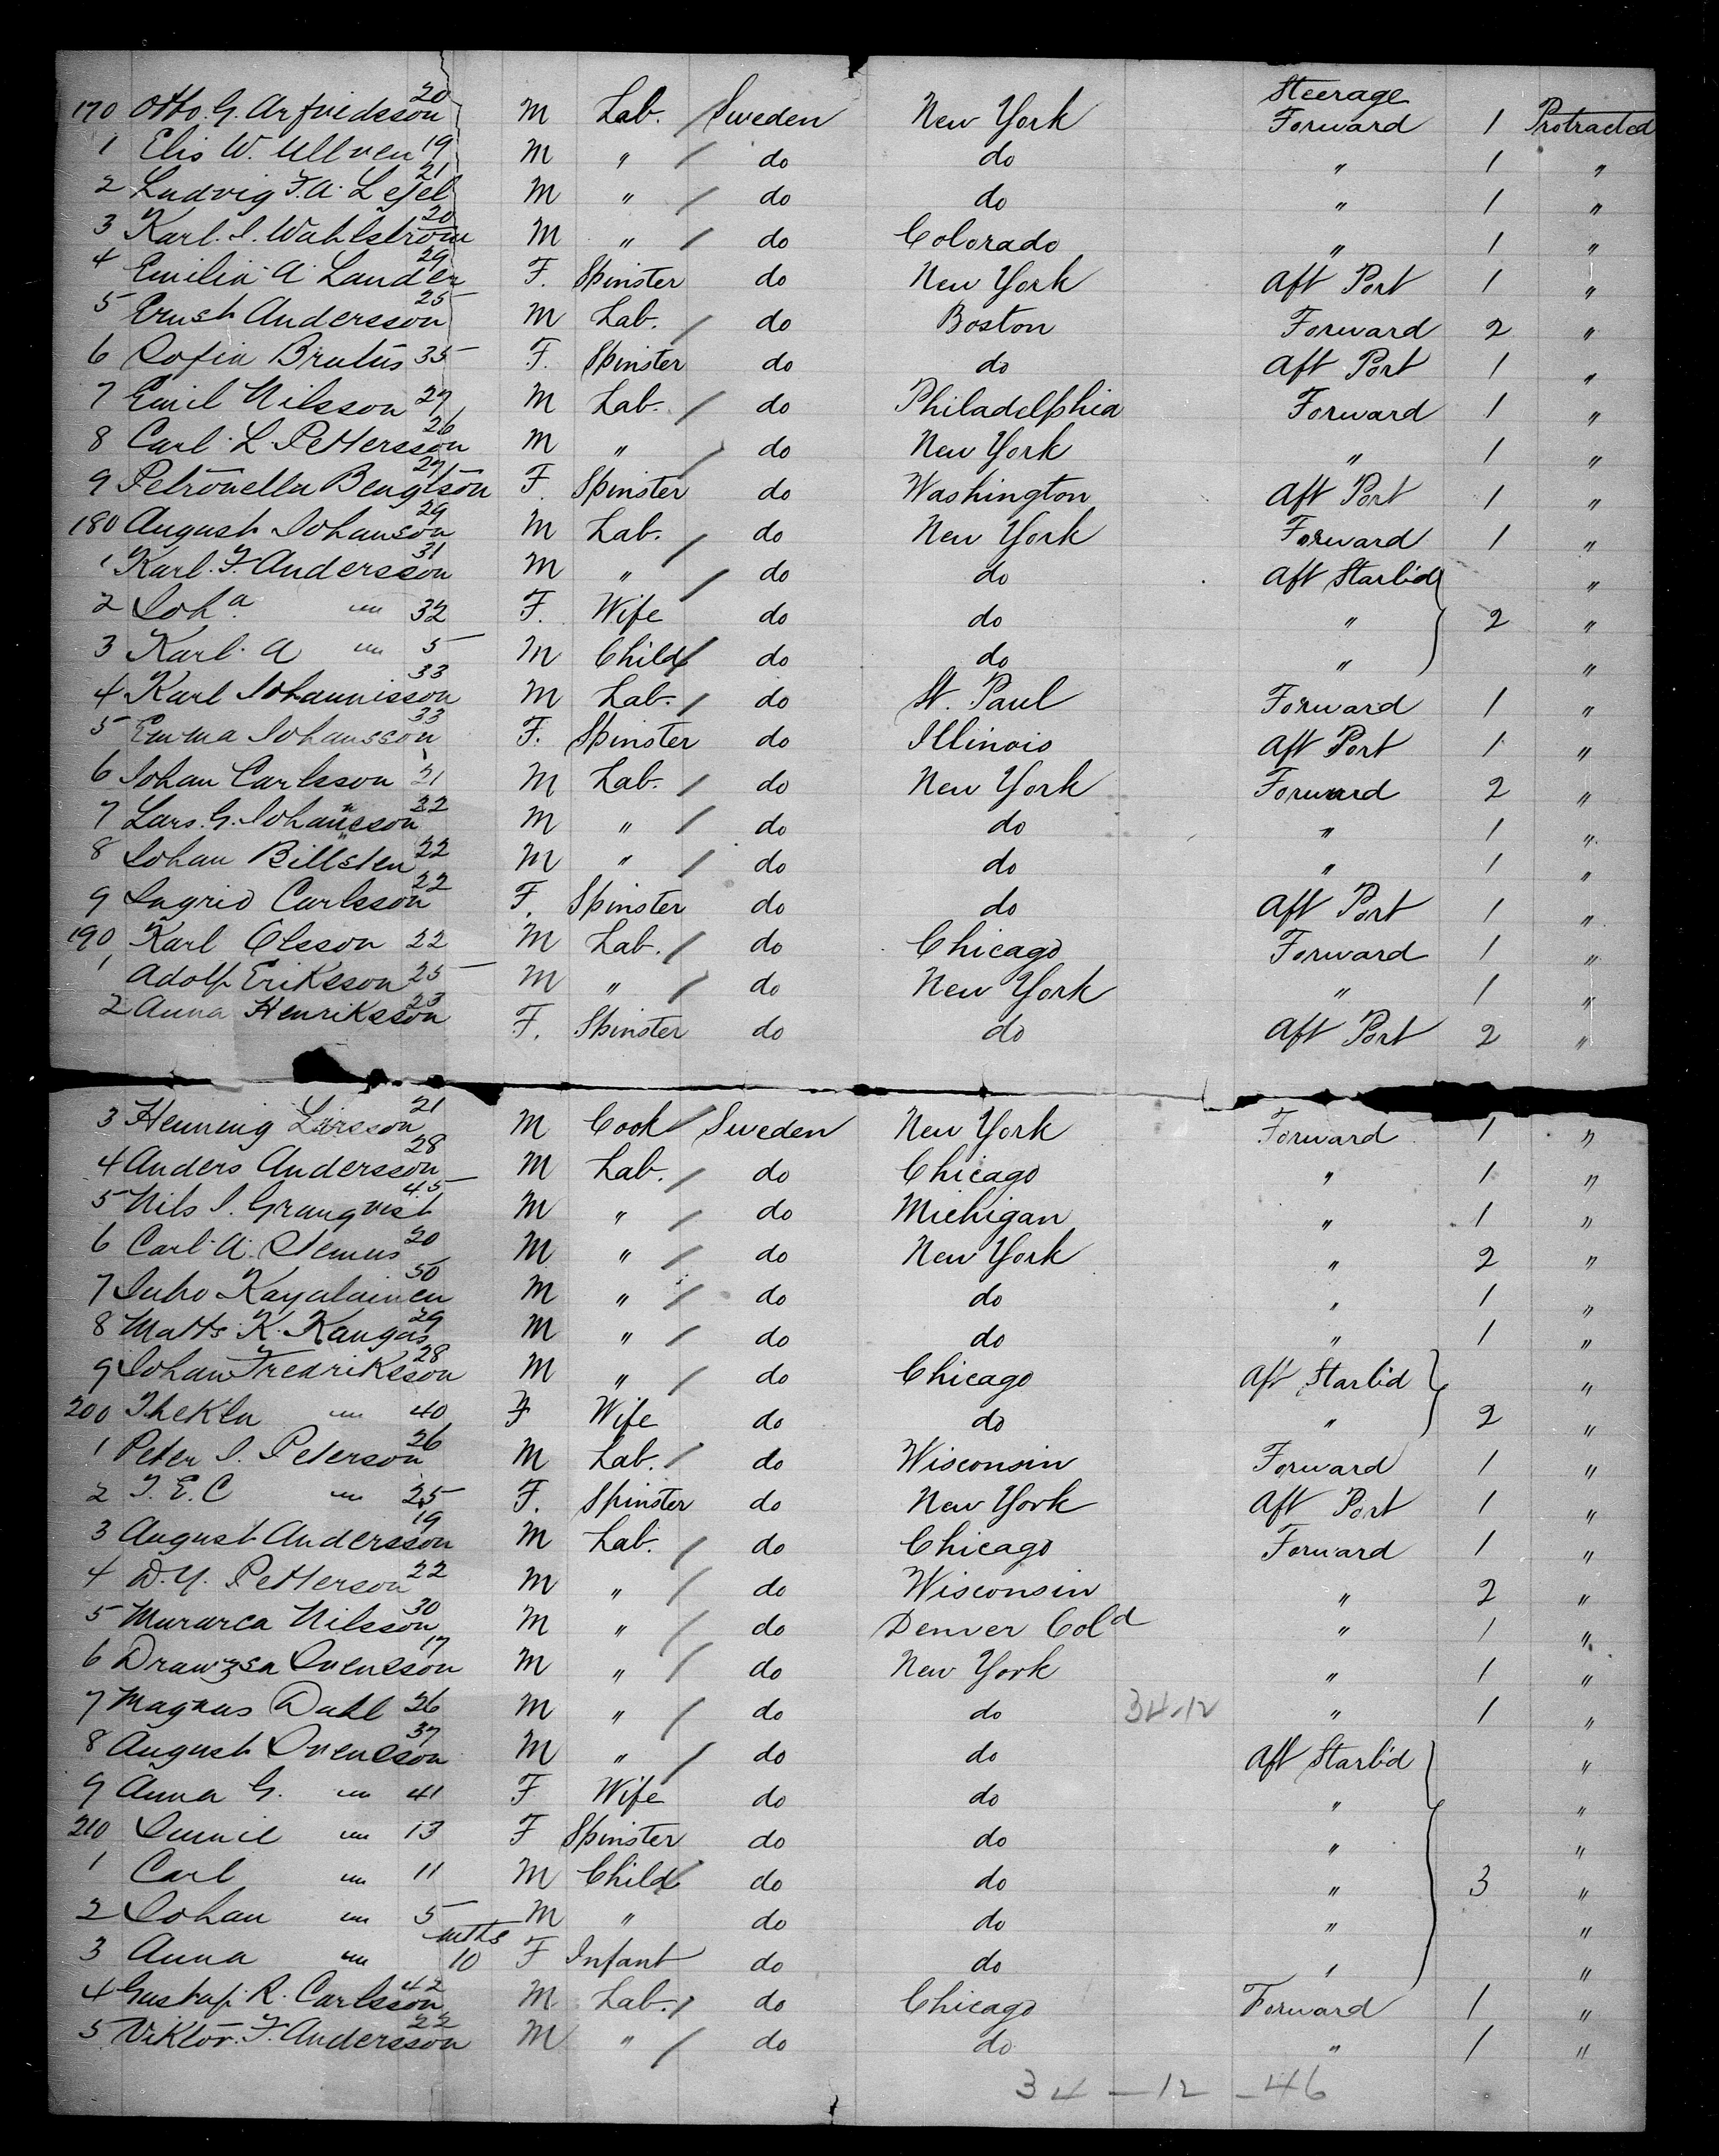 170 Otto. G. Arfvidsson 20 M Lab. / Sweden New York Steerage Forward 1 Protracted
1 Elis W. Ullven 19 M " / do do " 1 "
2 Ludvig F. A. Lejel 21 M " / do do " 1 "
3 Karl. I. Wahlström 20 M " / do Colorado " 1 "
4 Emilia A Landen 29 F. Spinster do New York Aft Port 1 "
5 Ernst Andersson 25 M Lab. / do Boston Forward 2 "
6 Sofia Brutus 35 F. Spinster do do Aft Port 1 "
7 Emil Nilsson 27 M Lab. / do Philadelphia Forward 1 "
8 Carl L Pettersson 26 M " / do New York " 1 "
9 Petronella Bengtson 27 F. Spinster do Washington Aft Port 1 "
180 August Johanson 29 M Lab. / do New York Forward 1 "
1 Karl. F. Andersson 31 M " / do do Aft Starb'd "
2 Joha " 32 F. Wife do do " 2 "
3 Karl. A " 5 M Child / do do " "
4 Karl Johannisson 33 M Lab. / do St. Paul Forward 1 "
5 Emma Johansson 33 F. Spinster do Illinois Aft Port 1 "
6 Johan Carlsson 21 M Lab. / do New York Forward 2 "
7 Lars. G. Johansson 22 M " / do do " 1 "
8 Johan Billsten 22 M " / do do " 1 "
9 Ingrid Carlsson 22 F. Spinster do do Aft Port 1 "
190 Karl Olsson 22 M Lab. / do Chicago Forward 1 "
1 Adolf Eriksson 25 M " / do New York " 1 "
2 Anna Henriksson 23 F. Spinster do do Aft Port 2 "
3 Henning Larsson 21 M Cook / Sweden New York Forward 1 "
4 Anders Andersson 28 M Lab. / do Chicago " 1 "
5 Nils I. Granqvist 45 M " / do Michigan " 1 "
6 Carl. A. 20 M " / do New York " 2 "
7 Juho Kayalainen 50 M " / do do " 1 "
8 Matts K. Kangas 29 M " / do do " 1 "
9 Johan Fredriksson 28 M " / do Chicago Aft Starb'd "
200 Thekla " 40 F Wife do do " 2 "
1 Peter I. Peterson 26 M Lab. / do Wisconsin Forward 1 "
2 T. E. C " 25 F. Spinster do New York Aft Port 1 "
3 August Andersson 19 M Lab. / do Chicago Forward 1 "
4 D. Y. Petterson 22 M " / do Wisconsin " 2 "
5 Murarca Nilsson 30 M " / do Denver Cold " 1 "
6 Svensson 17 M " / do New York " 1 "
7 Magnus Dahl 26 M " / do do 34-12 " 1 "
8 August Svensson 37 M " / do do Aft Starb'd "
9 Anna G. " 41 F Wife do do " "
210 " 13 F Spinster do do " "
1 Carl " 11 M Child / do do " 3 "
2 Johan " 5 M " do do " "
3 Anna " mths 10 F Infant do do " "
4 Gustaf. R. Carlsson 42 M Lab. / do Chicago Forward 1 "
5 Viktor. F. Andersson 22 M " / do do " 1 "
34 - 12 - 46